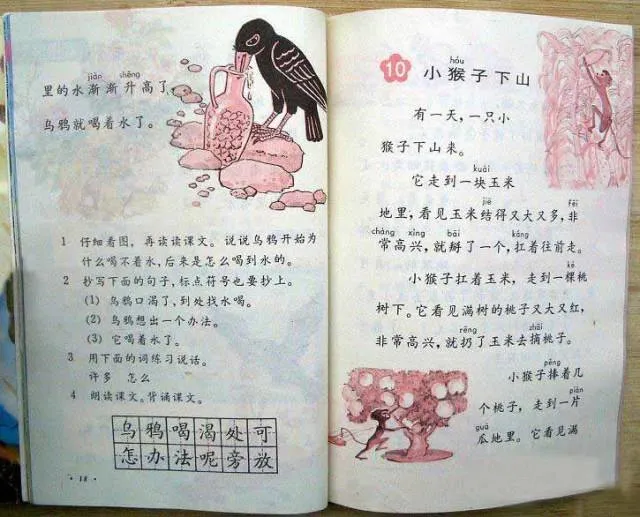 jiàn shēng
里的水渐渐升高了,
乌鸦就喝着水了。
1 仔细看图,再读读课文。说说乌鸦开始为
什么喝不着水,后来是怎么喝到水的。
2 抄写下面的句子,标点符号也要抄上。
(1) 乌鸦口渴了,到处找水喝。
(2) 乌鸦想出一个办法。
(3) 它喝着水了。
3 用下面的词练习说话。
许多 怎么
4 朗读课文。背诵课文。
乌鸦喝渴处可
怎办法呢旁放
·18·
hóu
10 小猴子下山
有一天,一只小
猴子下山来。
kuài
它走到一块玉米
jiē fēi
地里,看见玉米结得又大又多,非
cháng xìng bāi káng
常高兴,就掰了一个,扛着往前走。
kē
小猴子扛着玉米,走到一棵桃
树下。它看见满树的桃子又大又红,
rēng zhāi
非常高兴,就扔了玉米去摘桃子。
pěng
小猴子捧着几
piàn
个桃子,走到一片
guā
瓜地里。它看见满